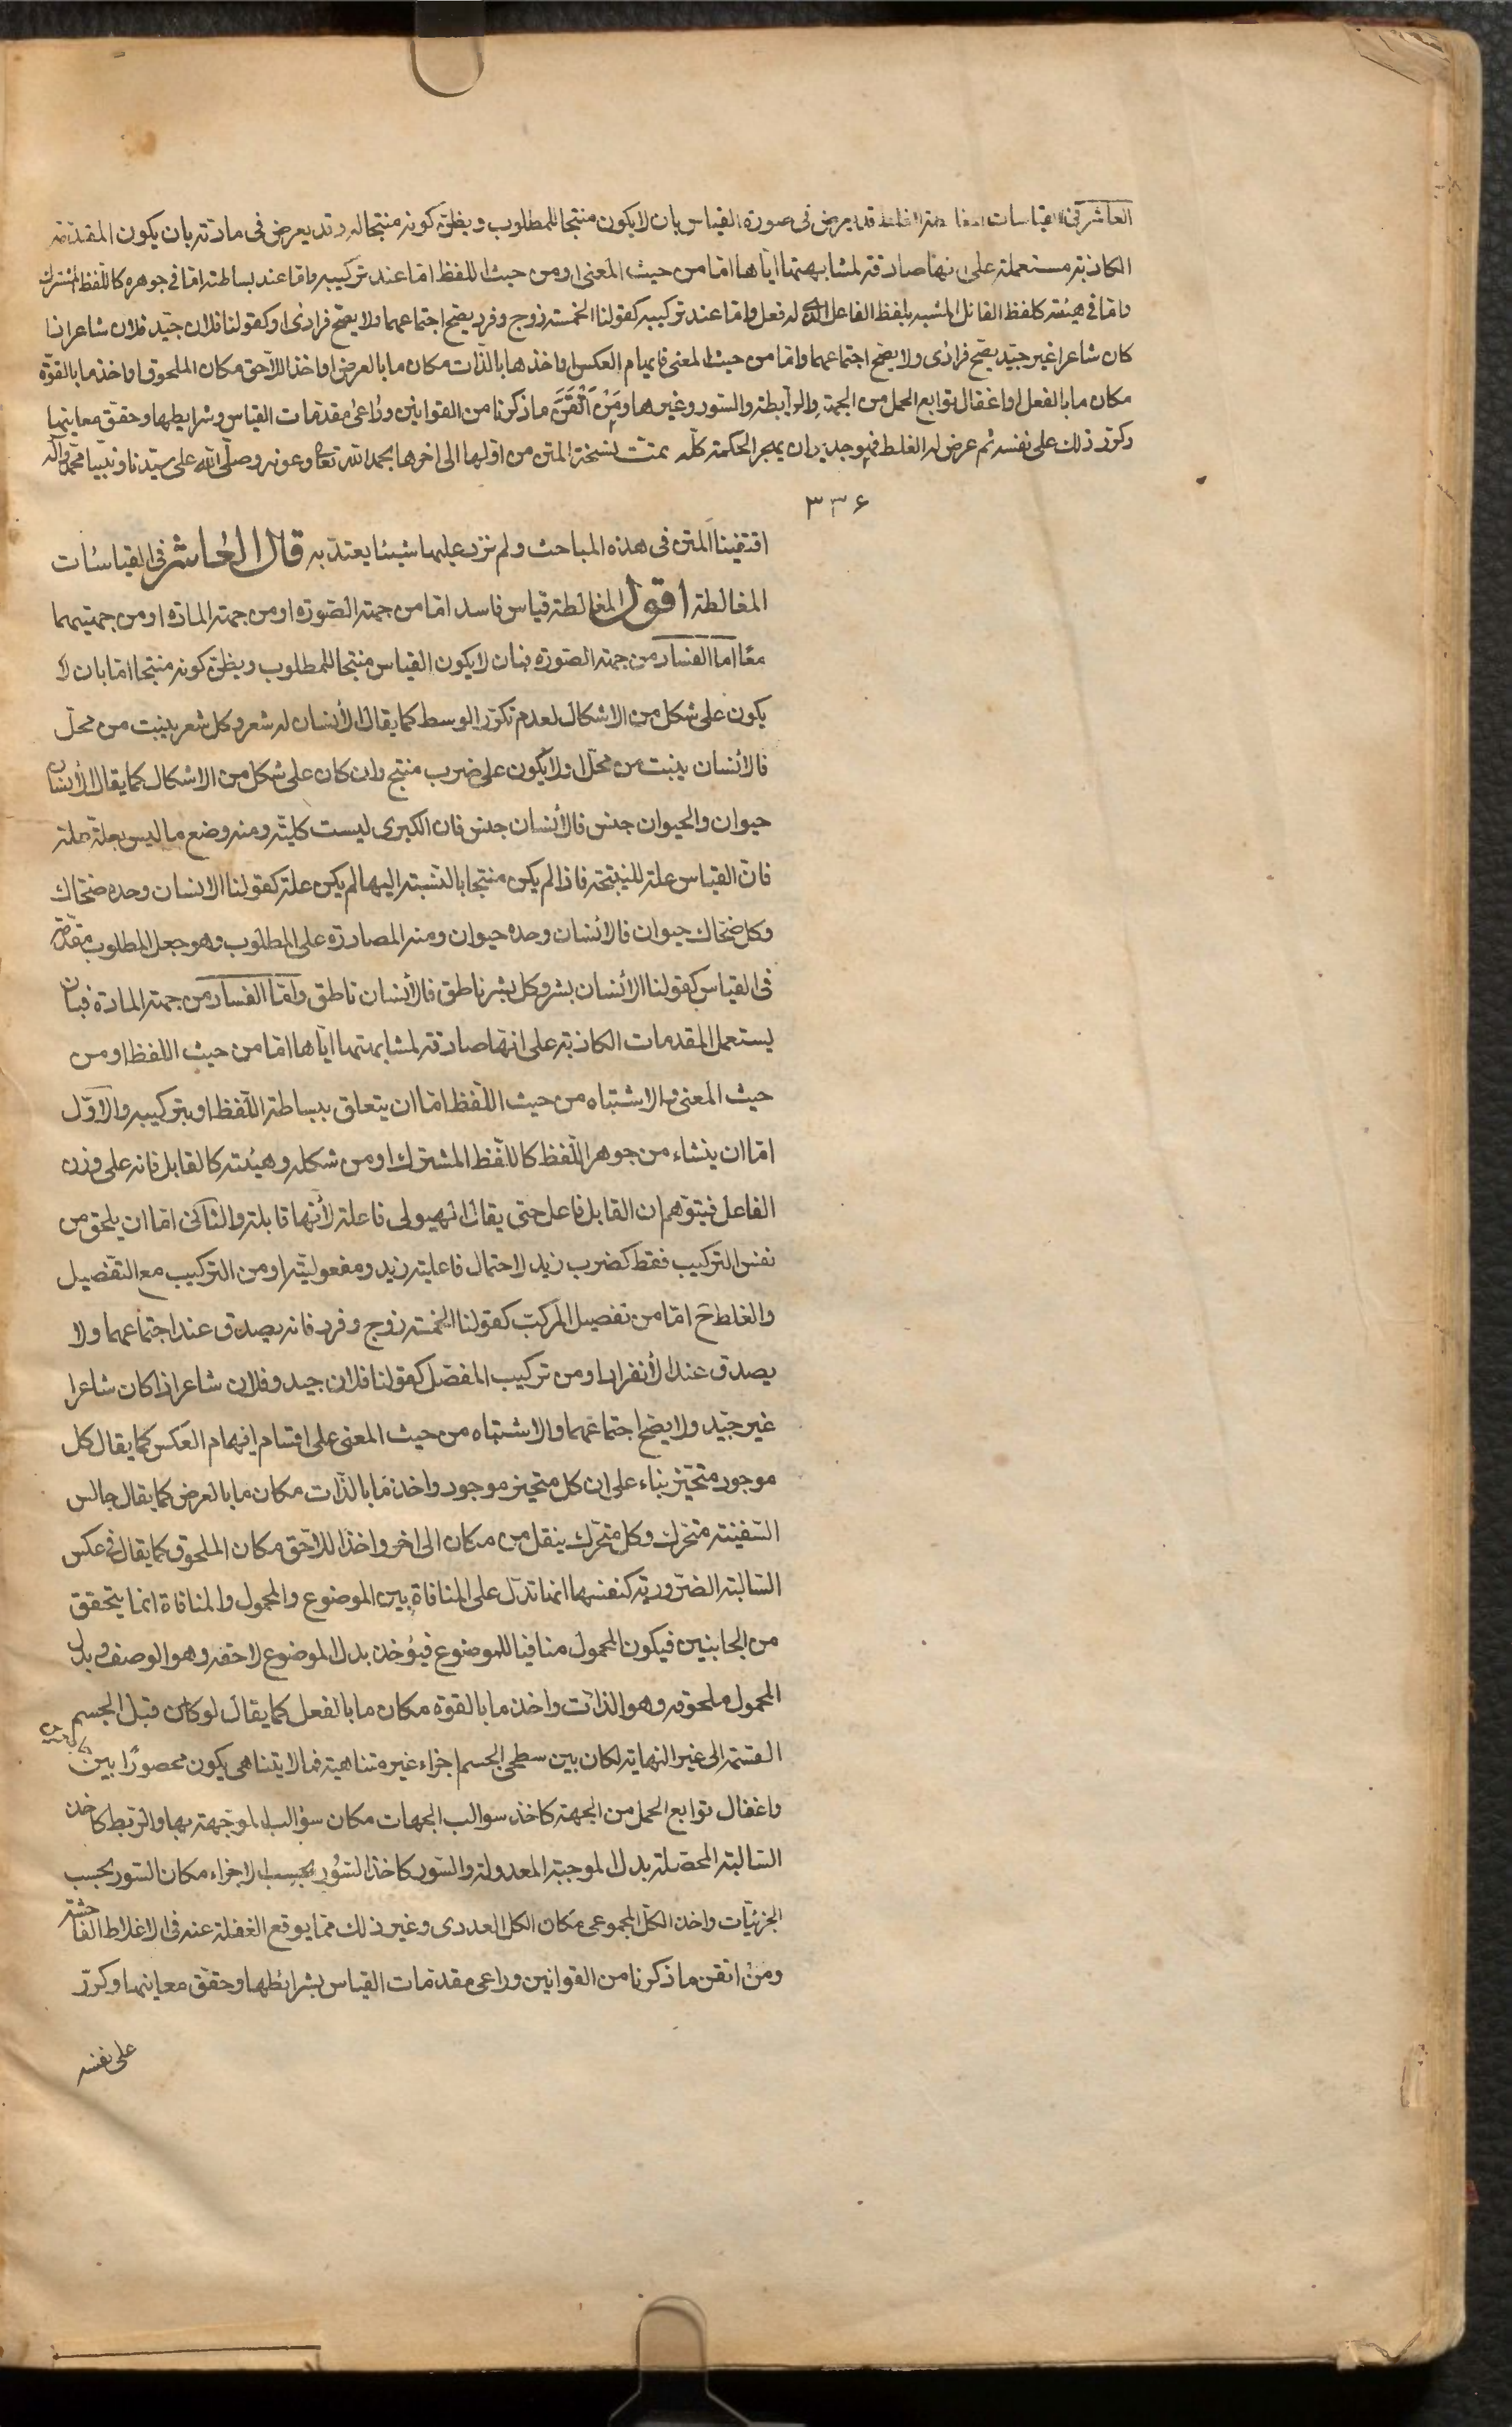 العاشر فى القياسات المغالطية الغلط قد يعرض فى صورة القياس بان لا يكون منتجا للمطلوب ويظن كونه منتجا له وقد يعرض فى مادته بان يكون المقدمة
الكاذبة مستعملة على انها صادقة لمشابهتها اياها اما من حيث المعنى او من حيث اللفظ اما عند تركيبه واما عند بساطته اما فى جوهره كاللفظ المشترك
واما فى هيئته كلفظ القائل المشبه بلفظ الفاعل الذى له فعل واما عند تركيبه كقولنا الخمسة زوج وفرد يصح اجتماعهما ولا يصح فرادى او كقولنا فلان جيد فلان شاعر اذا
كان شاعرا غير جيد يصح فرادى ولا يصح اجتماعهما واما من حيث المعنى فايهام العكس واخذ ما بالذات مكان ما بالعرض او اخذ اللاحق مكان الملحوق او اخذ ما بالقوة
مكان ما بالفعل او اغفال توابع الحمل من الجهة والرابطة والسور وغيرها ومن اتقن ما ذكرنا من القوانين وراعى مقدمات القياس وشرايطها وحقق معاينها
وكرر ذلك على نفسه ثم عرض له الغلط فهو جدير ان يهجر الحكمة كله تمت نسخة المتن من اولها الى اخرها بحمد الله تعا وعونه وصلى الله على سيدنا ونبينا محمد واله
۳۳۶
اقتفينا المتن فى هذه المباحث ولم نزد عليها شيئا يعتد به قال العاشر فى القياسات
المغالطة اقول المغالطة قياس فاسد اما من جهة الصورة او من جهة المادة او من جهتيهما
معا اما الفساد من جهة الصورة فبان لا يكون القياس منتجا للمطلوب ويظن كونه منتجا اما بان لا
يكون على شكل من الاشكال لعدم تكرر الوسط كما يقال الانسان له شعر وكل شعر ينبت من محل
فالانسان ينبت من محل او لا يكون على ضرب منتج وان كان على شكل من الاشكال كما يقال الانسان
حيوان والحيوان جنس فالانسان جنس فان الكبرى ليست كلية ومنه وضع ما ليس بعلة علة
فان القياس علة للنيتجة فاذا لم يكن منتجا بالنسبة اليها لم يكن علة كقولنا الانسان وحده ضحاك
وكل ضحاك حيوان فالانسان وحده حيوان ومنه المصادرة على المطلوب وهو جعل المطلوب مقدمة
فى القياس كقولنا الانسان بشر وكل بشر ناطق فالانسان ناطق واما الفساد من جهة المادة فبان
يستعمل المقدمات الكاذبة على انها صادقة لمشابهتها اياها اما من حيث اللفظ او من
حيث المعنى والاشتباه من حيث اللفظ اما ان يتعلق ببساطة اللفظ او بتركيبه والاول
اما ان ينشاء من جوهر اللفظ كاللفظ المشترك او من شكله وهيئته كالقابل فانه على وزن
الفاعل فيتوهم ان القابل فاعل حتى يقال الهيولى فاعلة لانها قابلة والثانى اما ان يلحق من
نفس التركيب فقط كضرب زيد لاحتمال فاعلية زيد ومفعوليته او من التركيب مع التفصيل
والغلط ح اما من تفصيل المركب كقولنا الخمسة زوج وفرد فانه يصدق عند اجتماعهما ولا
يصدق عند الانفراد او من تركيب المفصل كقولنا فلان جيد وفلان شاعر اذا كان شاعرا
غير جيد ولا يصح اجتماعهما والاشتباه من حيث المعنى على اقسام ايهام العكس كما يقال كل
موجود متحيز بناء على ان كل متحيز موجود واخذ ما بالذات مكان ما بالعرض كما يقال جالس
السفينة متحرك وكل متحرك ينقل من مكان الى اخر واخذ اللاحق مكان الملحوق كما يقال فى عكس
السالبة الضرورية كنفسها انما تدل على المنافاة بين الموضوع والمحمول والمنافاة انما يتحقق
من الجانبين فيكون المحمول منافيا للموضوع فيؤخذ بدل الموضوع لاحقه وهو الوصف وبدل
المحمول ملحوقه وهو الذات واخذ ما بالقوة مكان ما بالفعل كما يقال لو كان قبل الجسم
القسمة الى غير النهاية لكان بين سطحى الجسم اجزاء غير متناهية فما لا يتناهى يكون محصورا بين
واغفال توابع الحمل من الجهة كاخذ سوالب الجهات مكان سوالب الموجهة بها والربط كاخذ
السالبة المحصلة بدل الموجبة المعدولة والسور كاخذ السور بحسب الاجزاء مكان السور بحسب
الجزئيات واخذ الكل المجموعى مكان الكل العددى وغير ذلك مما يوقع الغفلة عنه فى الاغلاط الفاحشة
ومن اتقن ما ذكرنا من القوانين وراعى مقدمات القياس بشرائطها وحقق معاينها وكرر
على نفسه